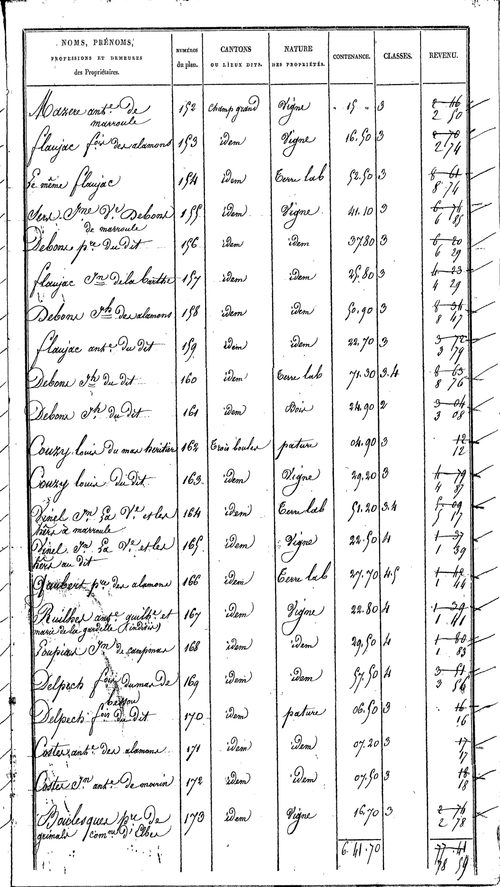 NOMS, PRÉNOMS, PROFESSIONS ET DEMEURES des Propriétaires. NUMÉROS du plan. CANTONS OU LIEUX DITS. NATURE DES PROPRIÉTÉS. CONTENANCE. CLASSES. REVENU.
Mazere ant.e de marroule 152 Champ grand Vigne 15 " 3 2 50
flaujac fois des alamons 153 idem Vigne 16.50 3 2 74
Le même flaujac 154 idem Terre lab 52.50 3 8 74
Sers J.ne V.e Debons de marroule 155 idem Vigne 41.10 3 6 85
Debons p.re du dit 156 idem idem 37.80 3 6 29
flaujac J.n de la Carthe 157 idem idem 25.80 3 4 29
Debons J.ph des alamons 158 idem idem 50.90 3 8 47
flaujac ant.e du dit 159 idem idem 22.70 3 3 79
Debons J.ph du dit 160 idem Terre lab 71.30 3.4 8 76
Debons J.ph du dit 161 idem Bois 24.90 2 3 08
Couzy louis du mas heritier 162 Trois boules pature 04.90 3 12
Couzy louis du dit 163 idem Vigne 29.20 3 4 87
Vinel J.n La V.e et les hérs à marroule 164 idem Terre lab 51.20 3.4 5 17
Vinel J.n La V.e et les hérs au dit 165 idem Vigne 22.50 4 1 39
Jaubert p.re des alamons 166 idem Terre lab 27.70 4.5 1 44
Ruilhes ant.e guilh.e et marié de la gardelle 167 idem Vigne 22.80 4 1 41
Loupias J.n de caupmas 168 idem idem 29.50 4 1 83
Delpech fois du mas de 169 idem idem 57.50 4 3 56
Delpech fois du dit 170 idem pature 06.50 3 16
Costes ant.e des alamons 171 idem idem 07.20 3 17
Costes J.n ant.e de 172 idem idem 07.50 3 18
Boulesques p.re de grimals com.ne d'Elbes 173 idem Vigne 16.70 3 2 78
6.41.70 78 59